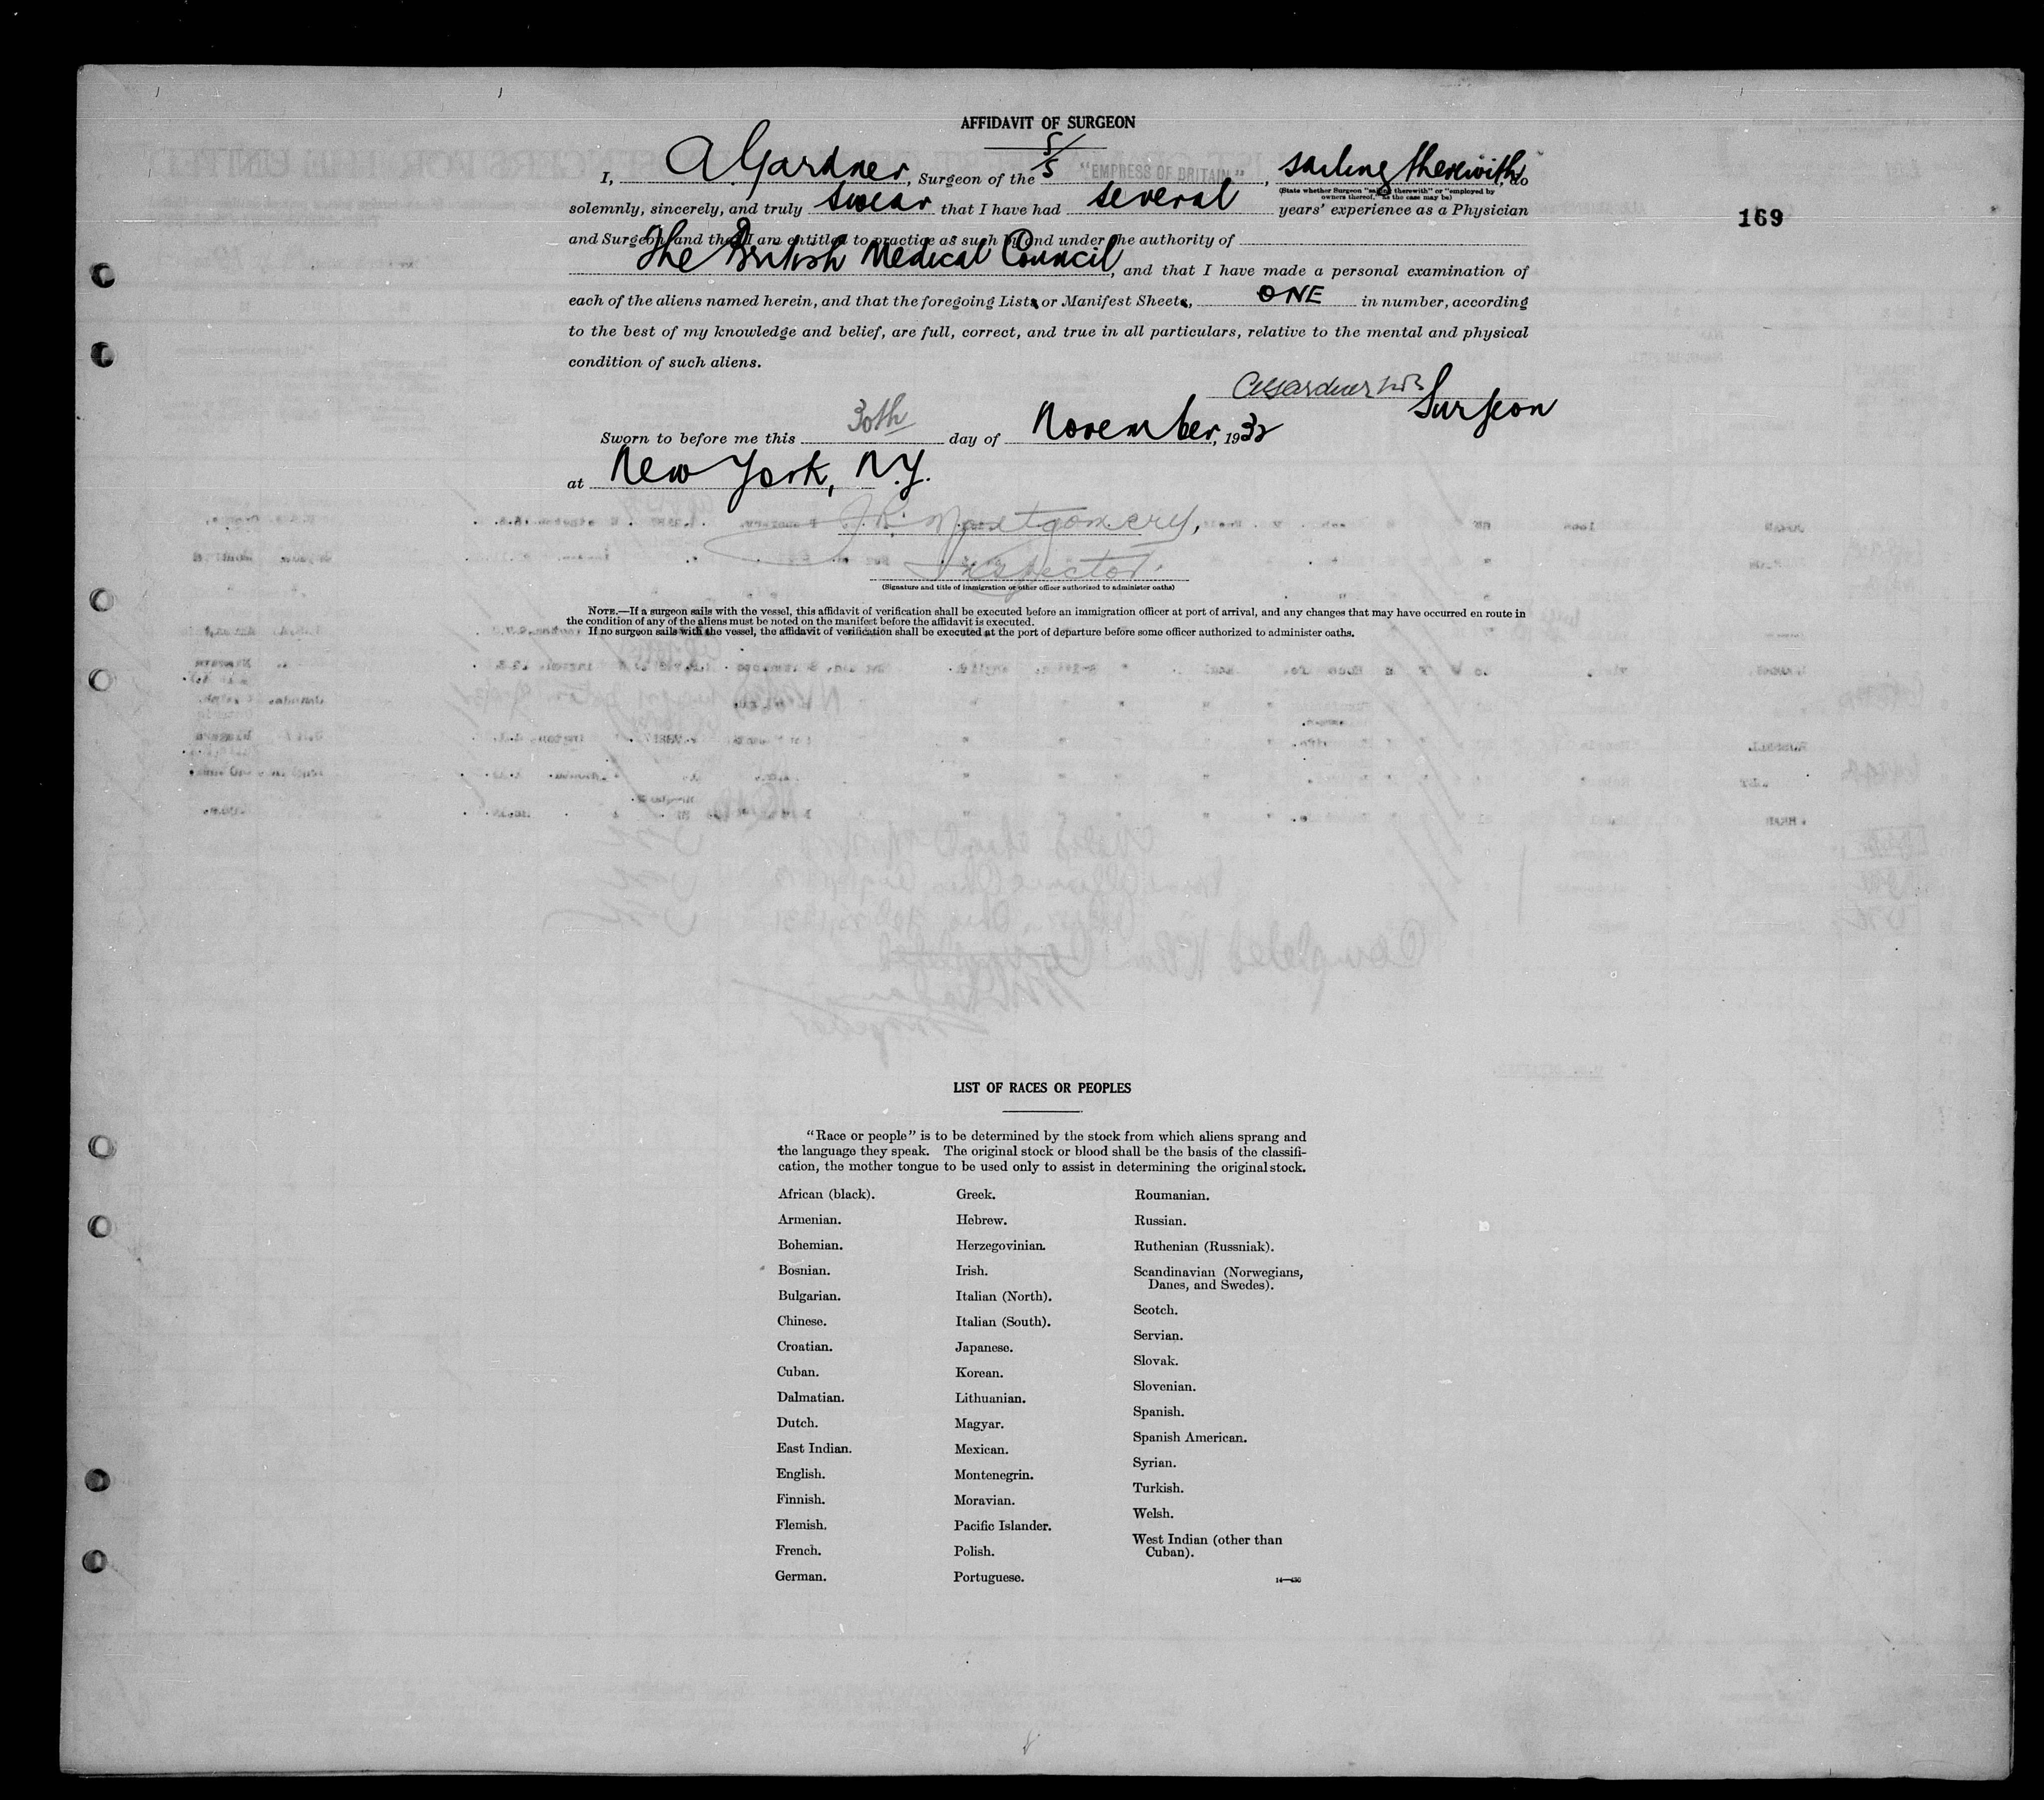 AFFIDAVIT OF SURGEON
I, A Gardner, Surgeon of the S/S "EMPRESS OF BRITAIN", sailing therewith, do
(State whether Surgeon "sailing therewith" or "employed by
owners thereof," as the case may be)
solemnly, sincerely, and truly swear that I have had several years' experience as a Physician
169
and Surgeon, and that I am entitled to practice as such by and under the authority of
The British Medical Council, and that I have made a personal examination of
each of the aliens named herein, and that the foregoing Lists or Manifest Sheets, ONE in number, according
to the best of my knowledge and belief, are full, correct, and true in all particulars, relative to the mental and physical
condition of such aliens.
Surgeon
Sworn to before me this 30th day of November, 1932
at New York, N.Y.
J.R. Montgomery,
Inspector.
(Signature and title of immigration or other officer authorized to administer oaths)
NOTE.—If a surgeon sails with the vessel, this affidavit of verification shall be executed before an immigration officer at port of arrival, and any changes that may have occurred en route in
the condition of any of the aliens must be noted on the manifest before the affidavit is executed.
If no surgeon sails with the vessel, the affidavit of verification shall be executed at the port of departure before some officer authorized to administer oaths.
LIST OF RACES OR PEOPLES
"Race or people" is to be determined by the stock from which aliens sprang and
the language they speak. The original stock or blood shall be the basis of the classifi-
cation, the mother tongue to be used only to assist in determining the original stock.
African (black).
Armenian.
Bohemian.
Bosnian.
Bulgarian.
Chinese.
Croatian.
Cuban.
Dalmatian.
Dutch.
East Indian.
English.
Finnish.
Flemish.
French.
German.
Greek.
Hebrew.
Herzegovinian.
Irish.
Italian (North).
Italian (South).
Japanese.
Korean.
Lithuanian.
Magyar.
Mexican.
Montenegrin.
Moravian.
Pacific Islander.
Polish.
Portuguese.
Roumanian.
Russian.
Ruthenian (Russniak).
Scandinavian (Norwegians,
Danes, and Swedes).
Scotch.
Servian.
Slovak.
Slovenian.
Spanish.
Spanish American.
Syrian.
Turkish.
Welsh.
West Indian (other than
Cuban).